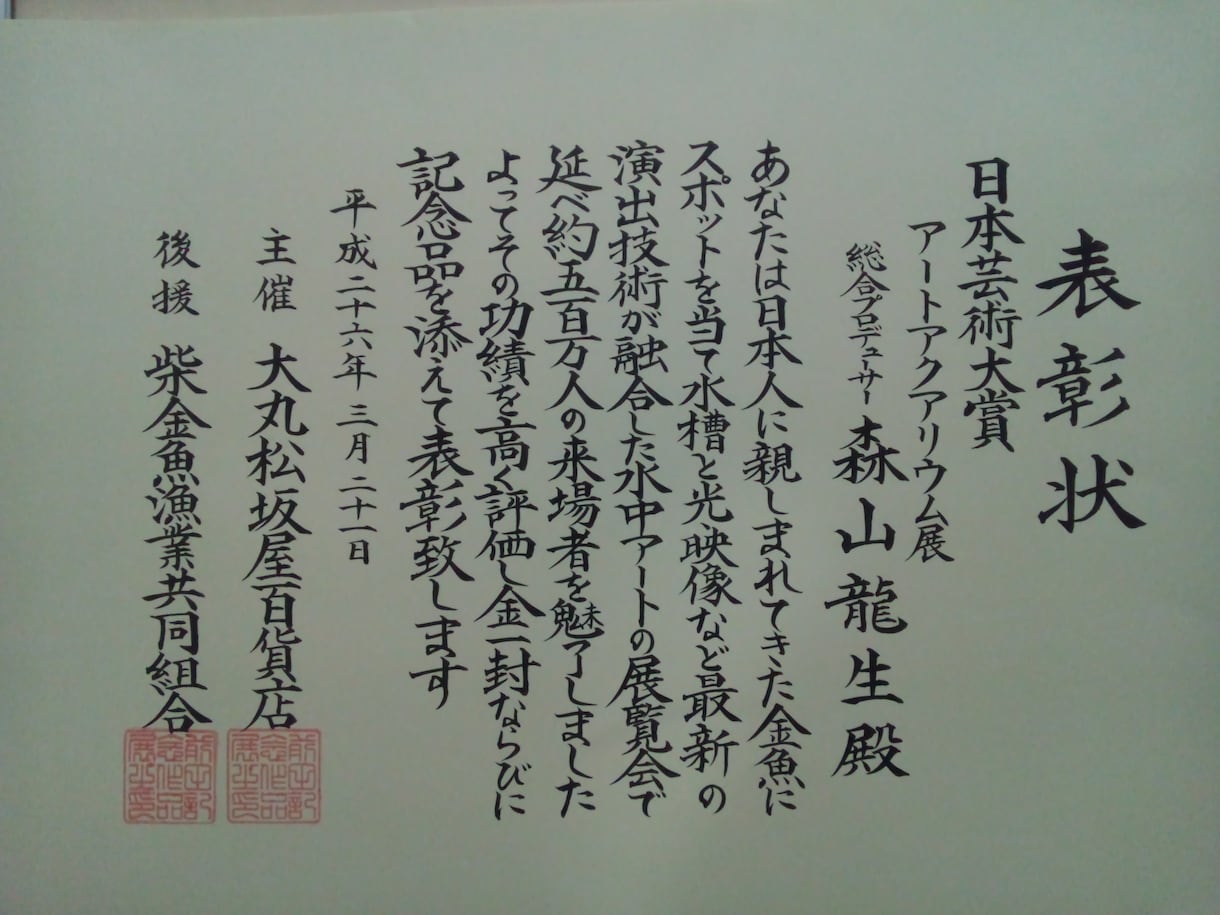 表彰状
日本芸術大賞
アートアクアリウム展
総合プロデューサー 森山龍生殿
あなたは日本人に親しまれてきた金魚に
スポットを当て水槽と光映像など最新の
演出技術が融合した水中アートの展覧会で
延べ約五百万人の来場者を魅了しました
よってその功績を高く評価し金一封ならびに
記念品を添えて表彰致します
平成二十六年 三月二十一日
主催 大丸松坂屋百貨店
後援 柴金魚漁業共同組合